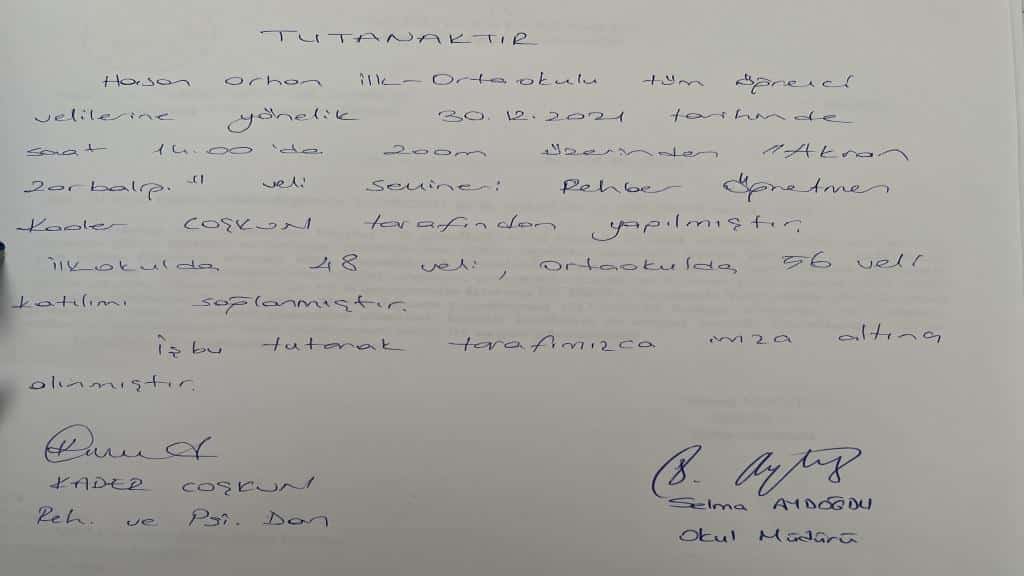 TUTANAKTIR
Hasan Orhan ilk-Ortaokulu tüm öğrenci
velilerine yönelik 30.12.2021 tarihinde
saat 14.00'da zoom üzerinden "Akran
Zorbalığı" veli semineri Rehber Öğretmen
Kader COŞKUN tarafından yapılmıştır.
ilkokulda 48 veli, ortaokulda 56 veli
katılımı sağlanmıştır.
İşbu tutanak tarafımızca imza altına
alınmıştır.
KADER COŞKUN
Reh. ve Psi. Dan
Selma AYDOĞDU
Okul Müdürü